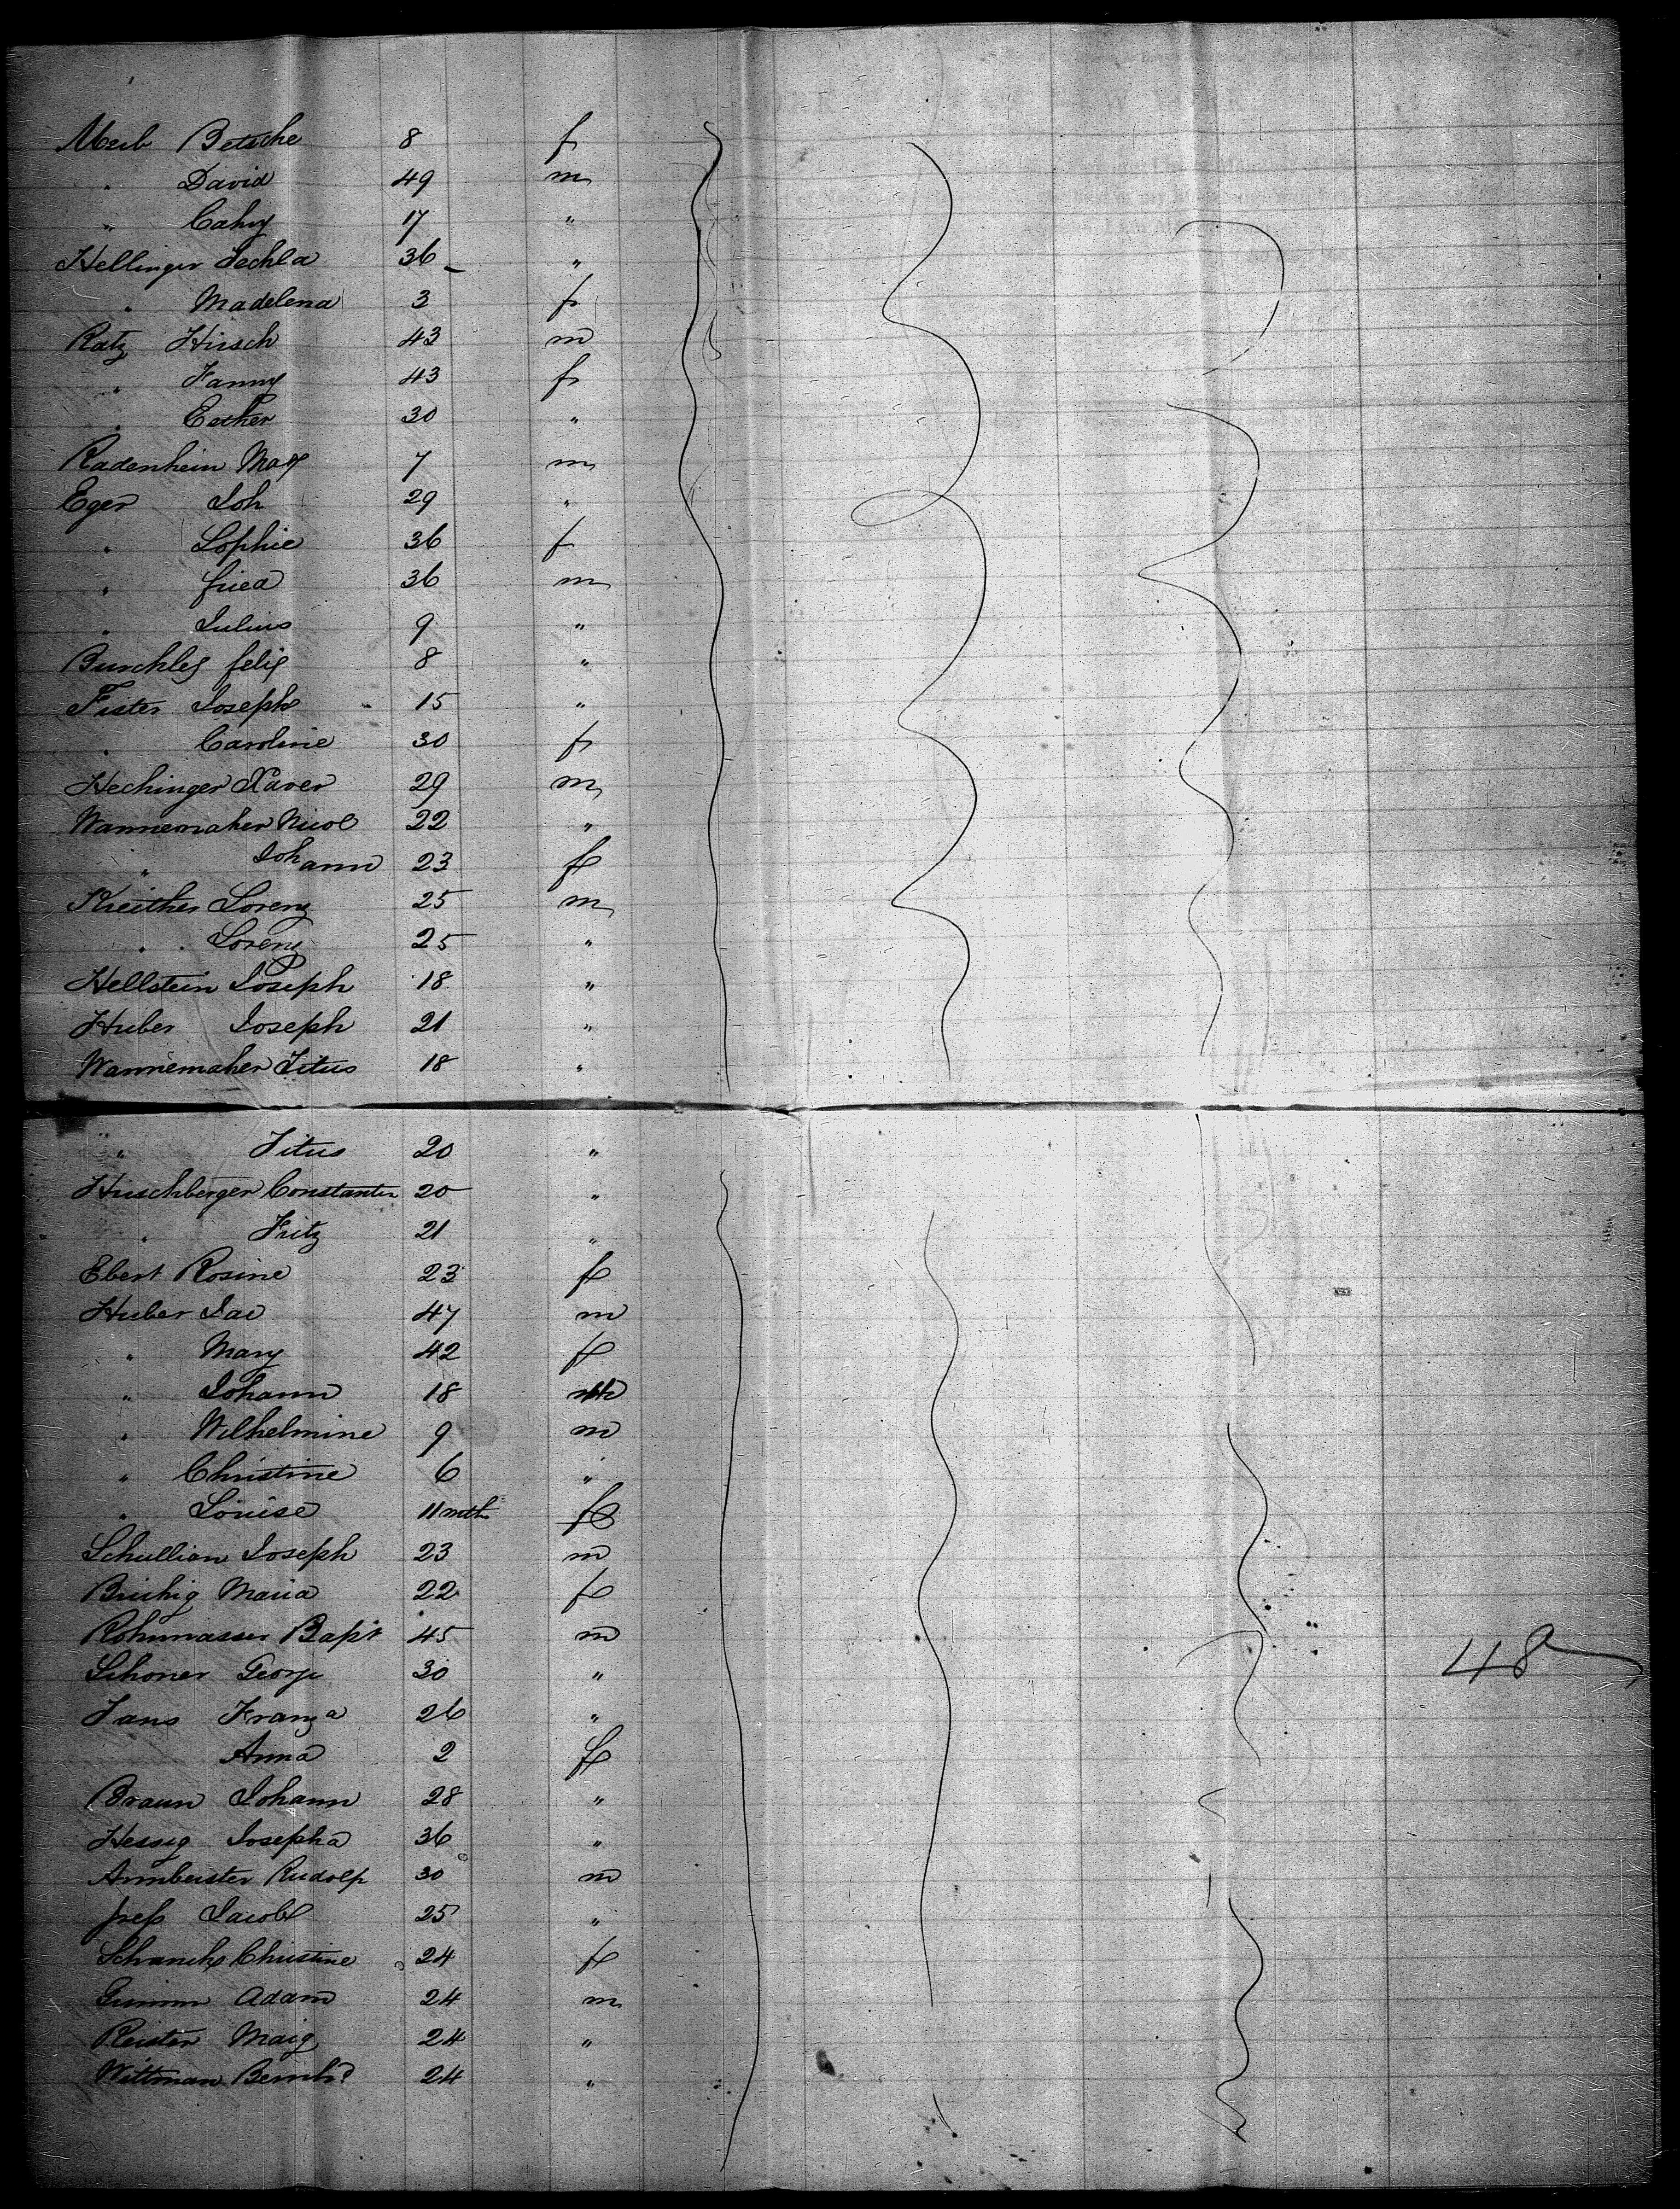 Betsche 8 f
" David 49 m
" Cahy 17 "
Hellinger Techla 36 "
" Madelena 3 f
Katz Hirsch 43 m
" Fanny 43 f
" Esther 30 "
Radenhein Max 7 m
Eger Joh 29 "
" Sophie 36 f
" 36 m
" Julius 9 "
felix 8 "
Fister Joseph 15 "
" Caroline 30 f
Hechinger Xaver 29 m
Wannemaher Nicol 22 "
" Johann 23 f
Kreither Lorenz 25 m
" Lorenz 25 "
Hellstein Joseph 18 "
Huber Joseph 21 "
Wannemaher Titus 18 "
" Titus 20 "
Hirschberger Constantin 20 "
" Fritz 21 "
Ebert Rosine 23 f
Huber Jac 47 m
" Mary 42 f
" Johann 18 m
" Wilhelmine 9 m
" Christine 6 "
" Louise 11 mth f
Schullian Joseph 23 m
Maria 22 f
Bapt 45 m
Schoner George 30 "
Jans Franza 26 "
Anna 2 f
Braun Johann 28 "
Hessig Josepha 36 "
Armbeister Rudolf 30 m
Jacob 25 "
Schanck Christine 24 f
Grimm Adam 24 m
Reister 24 "
Wittman Bernhd 24 "
48